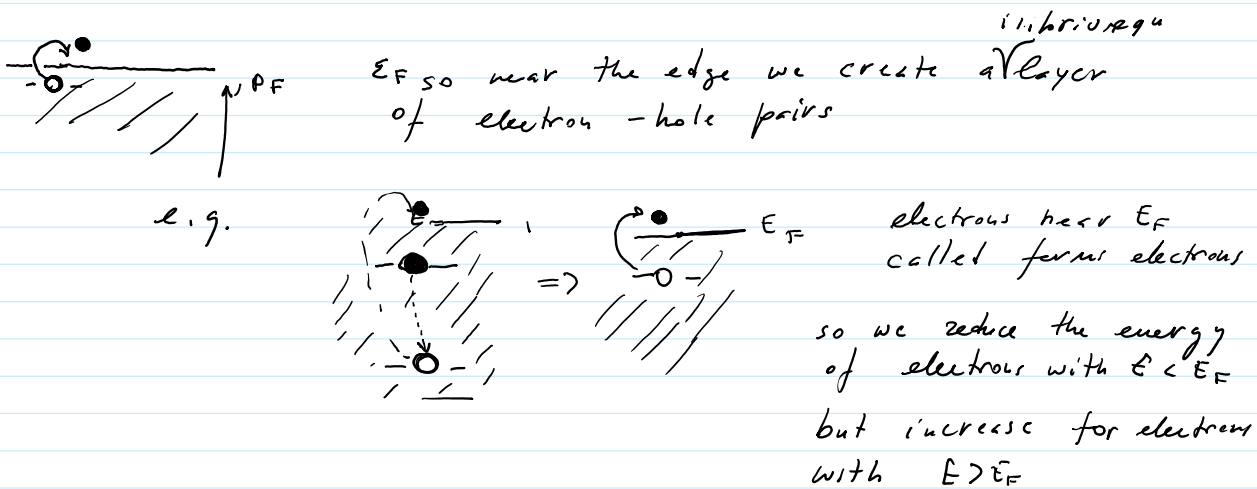 P_F
ε_F so near the edge we create a layer
of electron - hole pairs
e.g.
=> E_F
electrons near E_F
called fermi electrons
so we reduce the energy
of electrons with E < E_F
but increase for electrons
with E > E_F